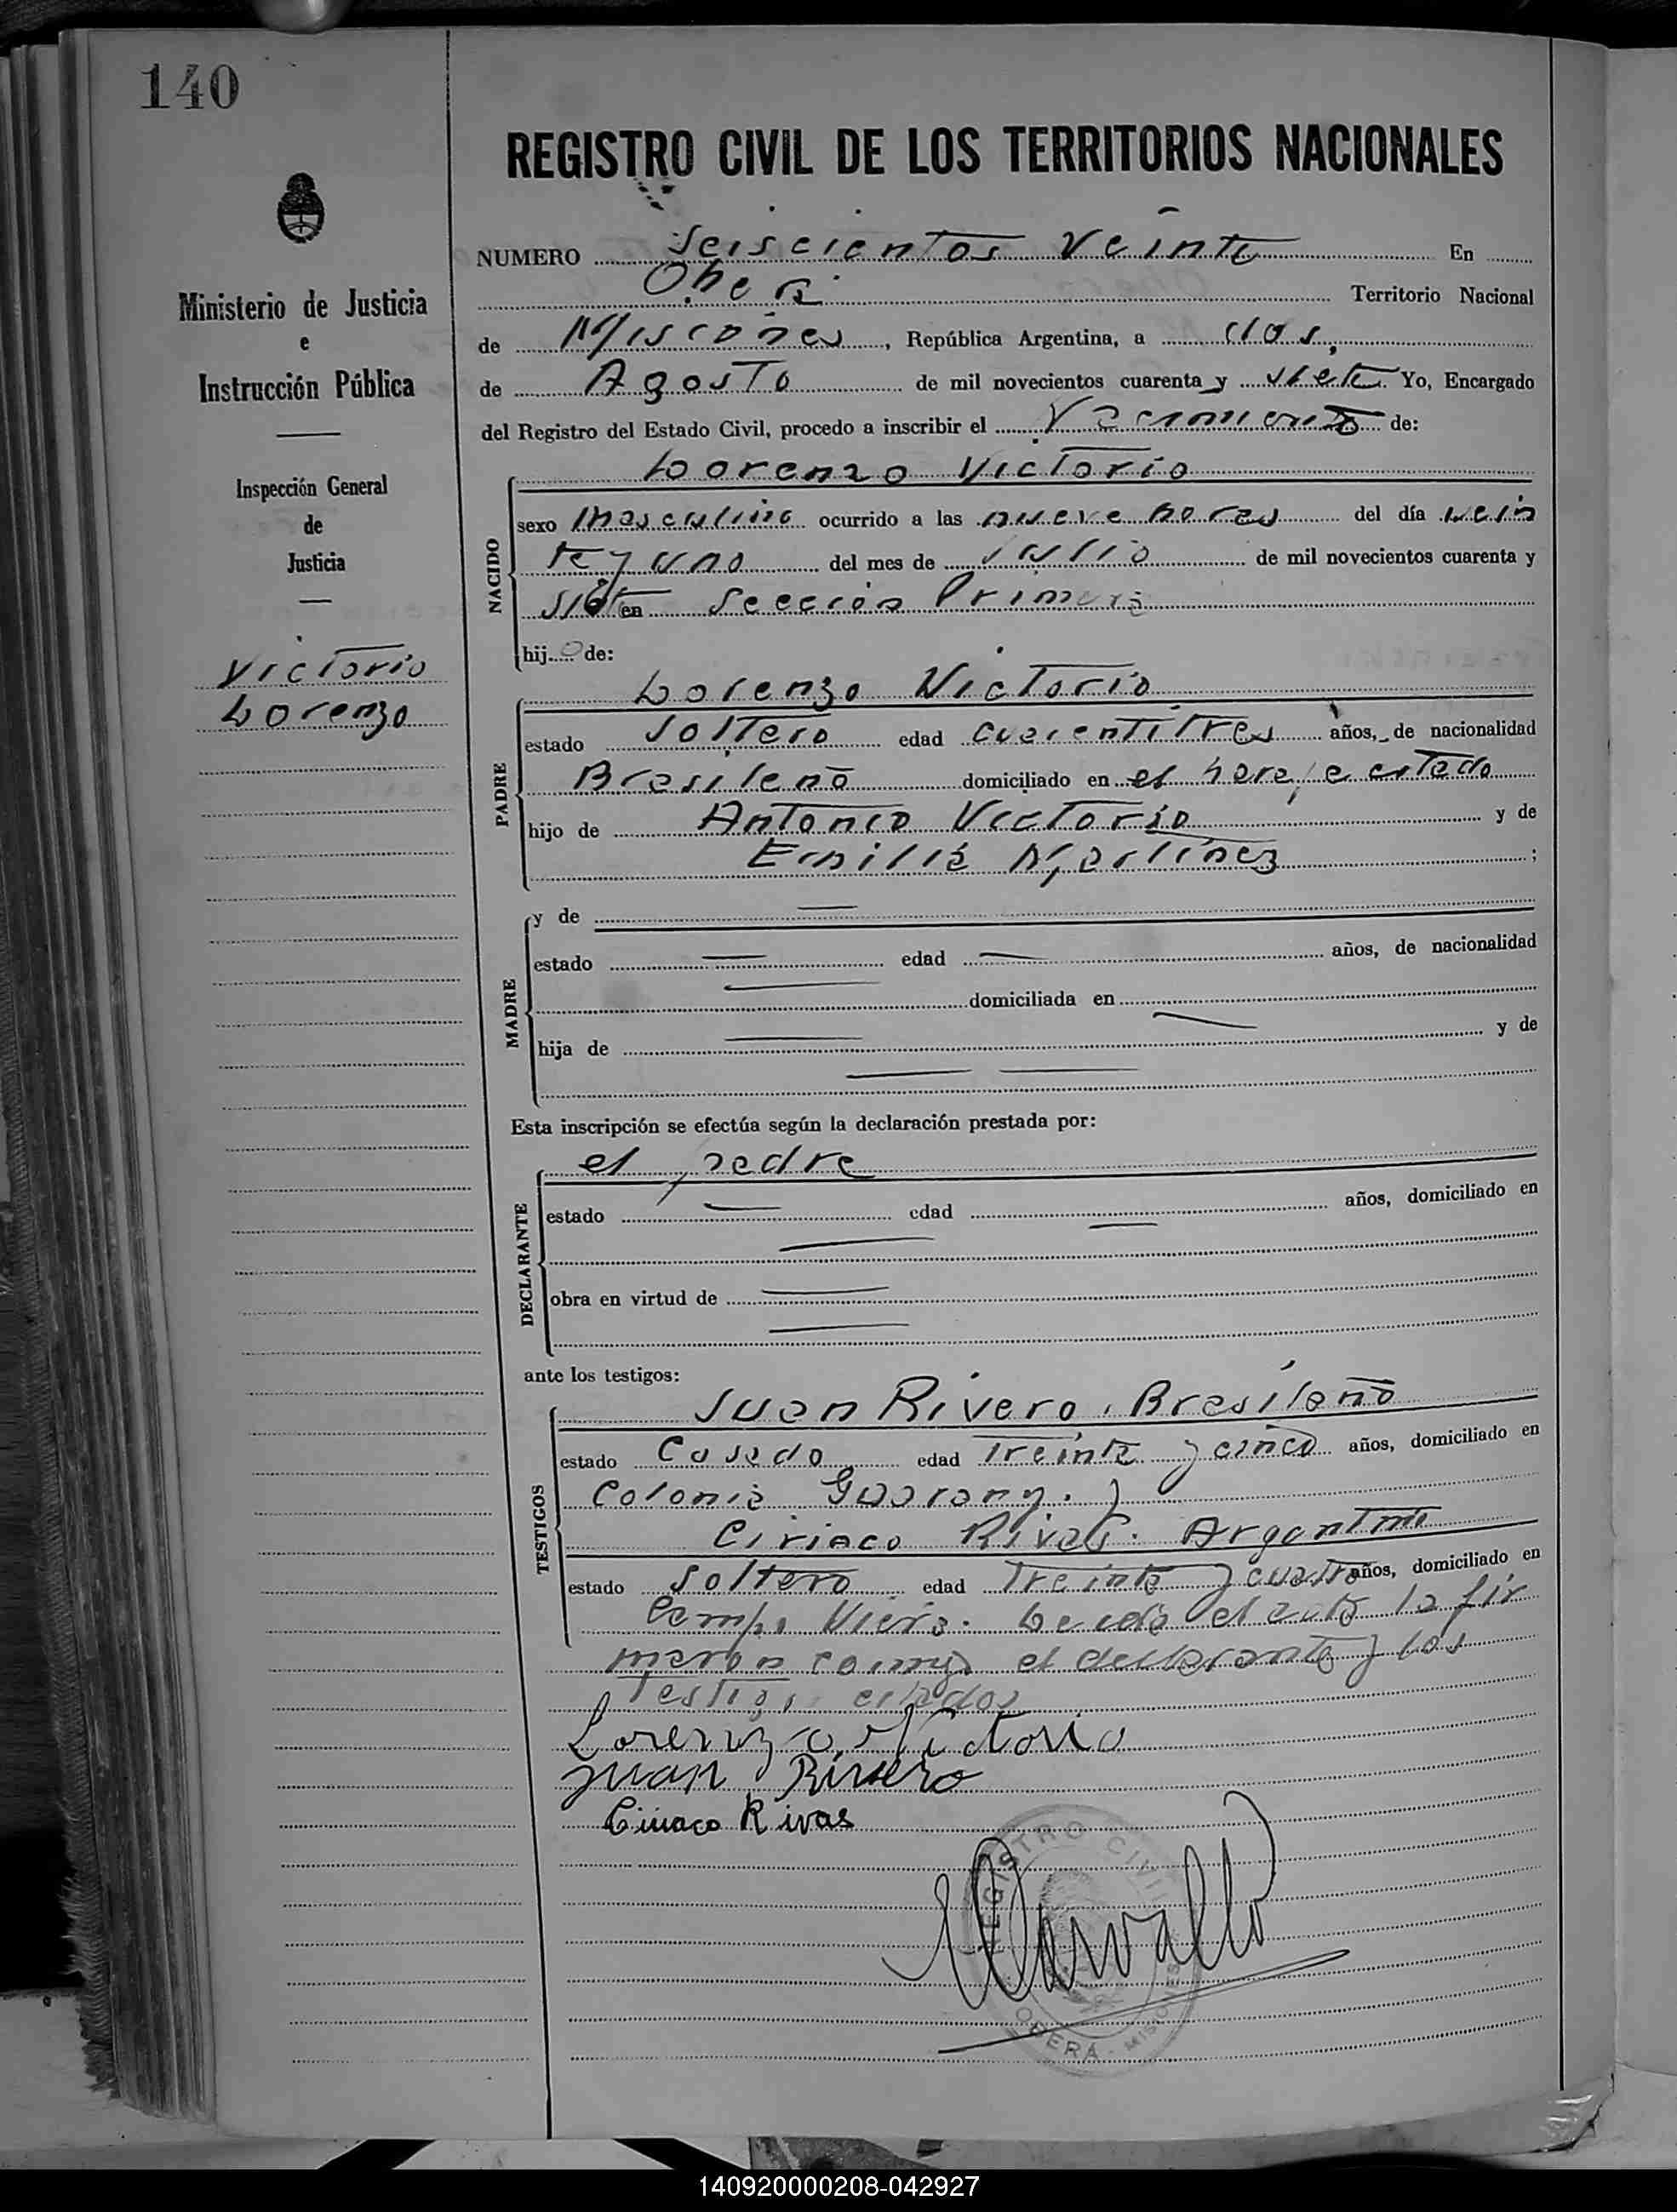 140
REGISTRO CIVIL DE LOS TERRITORIOS NACIONALES
Ministerio de Justicia
e
Instrucción Pública
Inspección General
de
Justicia
Victorio
Lorenzo
NUMERO Seiscientos Veinte En
Oberá Territorio Nacional
de Misiones, República Argentina, a dos
de Agosto de mil novecientos cuarenta y siete Yo, Encargado
del Registro del Estado Civil, procedo a inscribir el Nacimiento de:
Lorenzo Victorio
NACIDO
sexo masculino ocurrido a las nueve horas del día vein
te y uno del mes de Julio de mil novecientos cuarenta y
siete en Sección Primera
hijo de:
Lorenzo Victorio
PADRE
estado Soltero edad cuarentitres años, de nacionalidad
Brasileño domiciliado en el
hijo de Antonio Victorio y de
Emilia Martinez ;
MADRE
y de
estado edad años, de nacionalidad
domiciliada en
hija de y de
Esta inscripción se efectúa según la declaración prestada por:
el padre
DECLARANTE
estado edad años, domiciliado en
obra en virtud de
ante los testigos:
Juan Rivero. Brasileño
TESTIGOS
estado Casado edad Treinta y cinco años, domiciliado en
Colonia Guarany. y
Ciriaco Rivas. Argentino
estado Soltero edad Treinta y cuatro años, domiciliado en
Campo Viera. Leida el acta la fir
maron conmigo el declarante y los
Testigos citados
Lorenzo Victorio
Juan Rivero
Ciriaco Rivas
REGISTRO CIVIL
OBERA - MISIONES
140920000208-042927